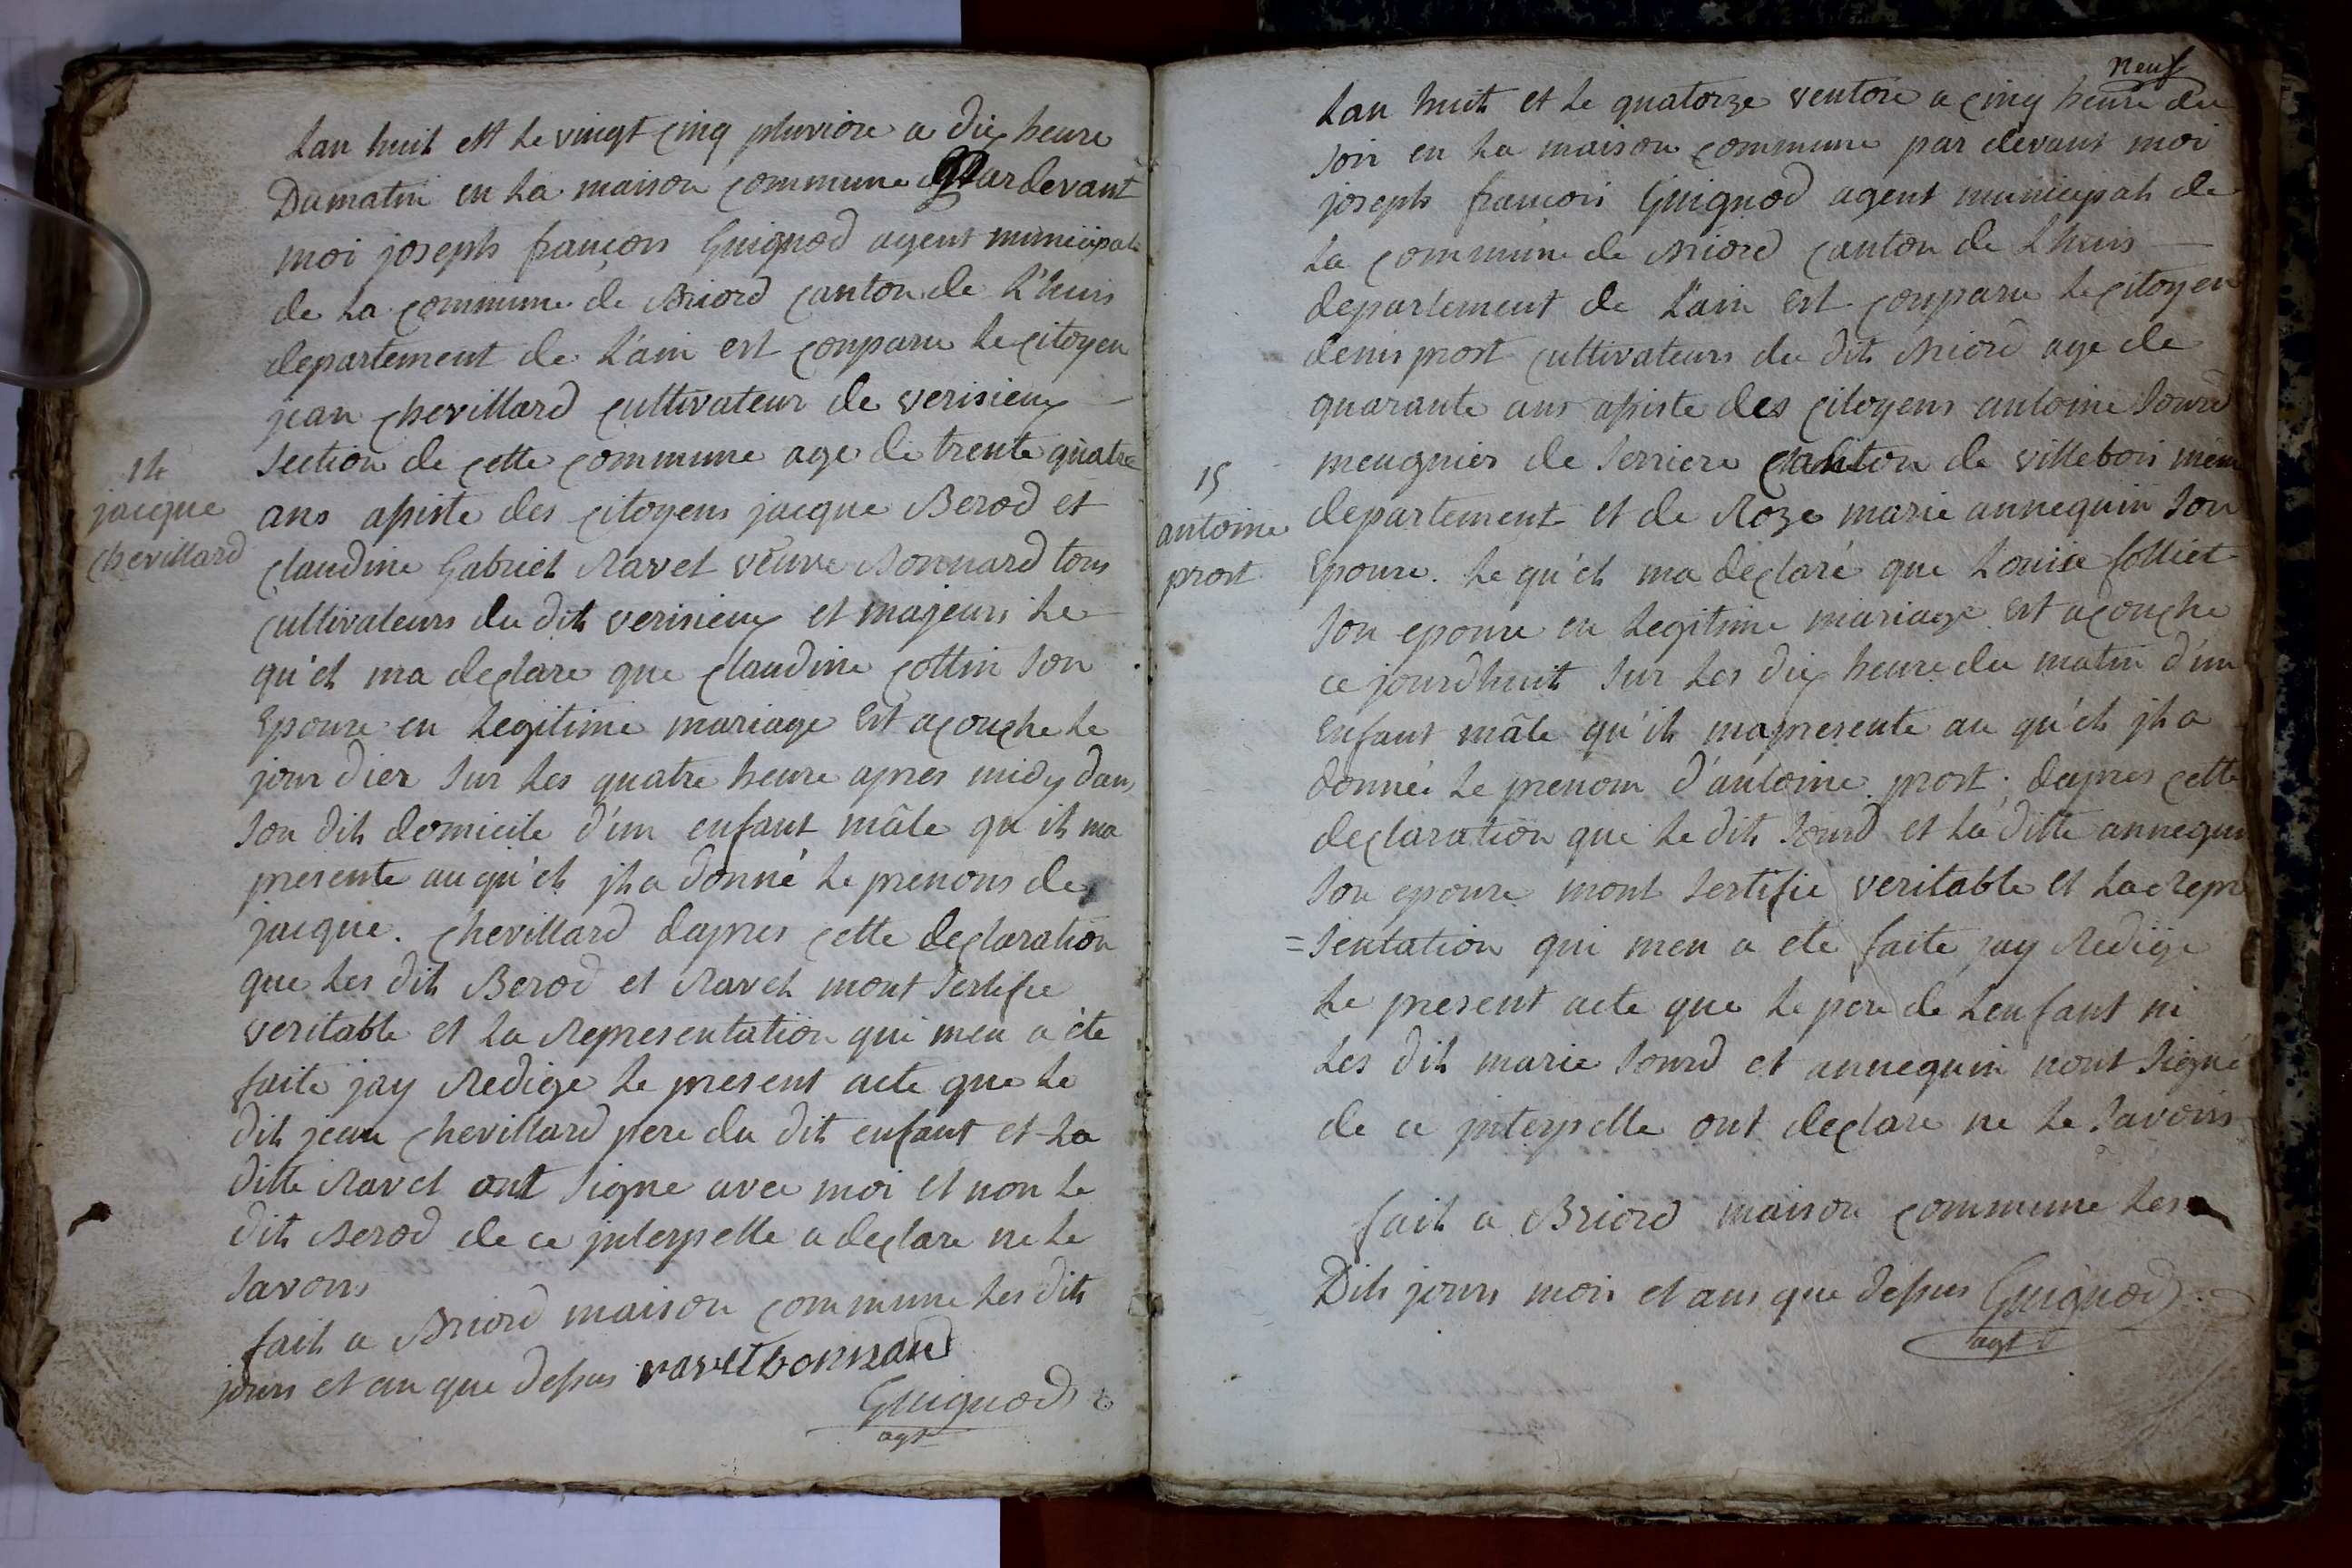 Lan huit est le vingt cinq pluviore a dix heure
Du matin en la maison commune pardevant
moi joseph françois Guignod agent municipal
de la commune de Briord canton de L'huis
departement de L'ain est conparu le citoyen
jean chevillard cultivateur de verisieux
section de cette commune age de trente quatre
14
jacque
chevillard
ans asiste des citoyens jacque Berod et
claudine Gabriel Ravet veuve Bonnard tous
cultivateurs du dit verisieux et majeurs le
qu'el ma declare que claudine cottin son
Epouse en legitime mariage Est acouche le
jour dier sur les quatre heure apres midy dans
son dit domicile d'un enfant mâle qu il ma
presente auqu'el jl a donné le prenons de
jacque. chevillard dapres cette declaration
que les dit Berod et Ravel mont sertifie
veritable et la Representation qui men a été
faite jay Redige le present acte que le
dit jean chevillard pere du dit enfant et la
ditte Ravet ont signe avec moi et non le
dit Berod de ce jnterpelle a declare ne le
savoirs
fait a Briord maison commune les dit
jours et an que dessus ravet bonnard
Guignod
agt
neuf
Lan huit et le quatorze ventore a cinq heure du
soir en la maison commune par devant moi
joseph francois Guignod agent municipal de
la commune de Briord canton de L'huis
departement de L'ain est conparu le citoyen
denis prost cultivateurs du dit Briord age de
quarante ans asiste des citoyens antoine sourd
meugnier de serriere canton de villebois meme
15
antoine
prost
departement et de Roze marie annequin son
Epouse. le qu'el ma declaré que Louise folliet
son epouse en legitime mariage est acouche
ce jourdhuit sur les dix heure du matin d'un
Enfant mâle qu'il mapresente au qu'el jl a
donné le prenom d'antoine. prost. dapres cette
declaration que le dit sourd et la ditte annequin
son epouse mont sertifie veritable et la repre
=sentation qui men a ete faite jay Redige
le present acte que le pere de lenfant ni
les dit marie sourd et annequin nont signé
de ce jnterpelle ont declare ne le savoirs
fait a Briord maison commune les
Dits jours mois et ans que dessus Guignod
agt